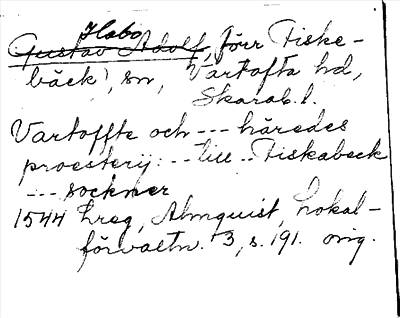 Habo
Gustav Adolf, förr Fiske-
bäck, sn, Vartofta hd,
Skarab. l.
Vartoffte och --- häredes
proesterij: --- till -- Fiskabeck
--- sockner
1544 Ereg, Almquist, Lokal-
förvaltn. 3, s. 191. orig.